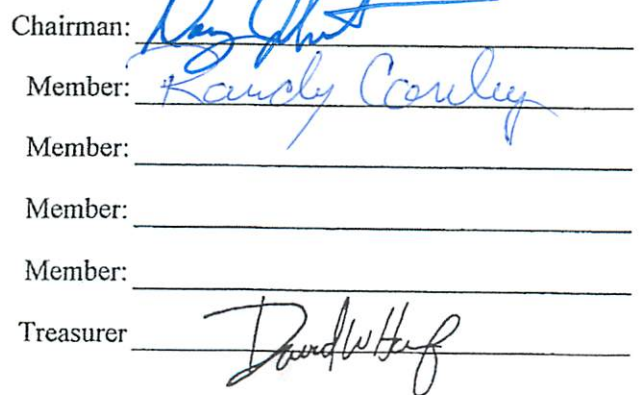 Chairman:
Member: Randy Conley
Member:
Member:
Member:
Treasurer David W